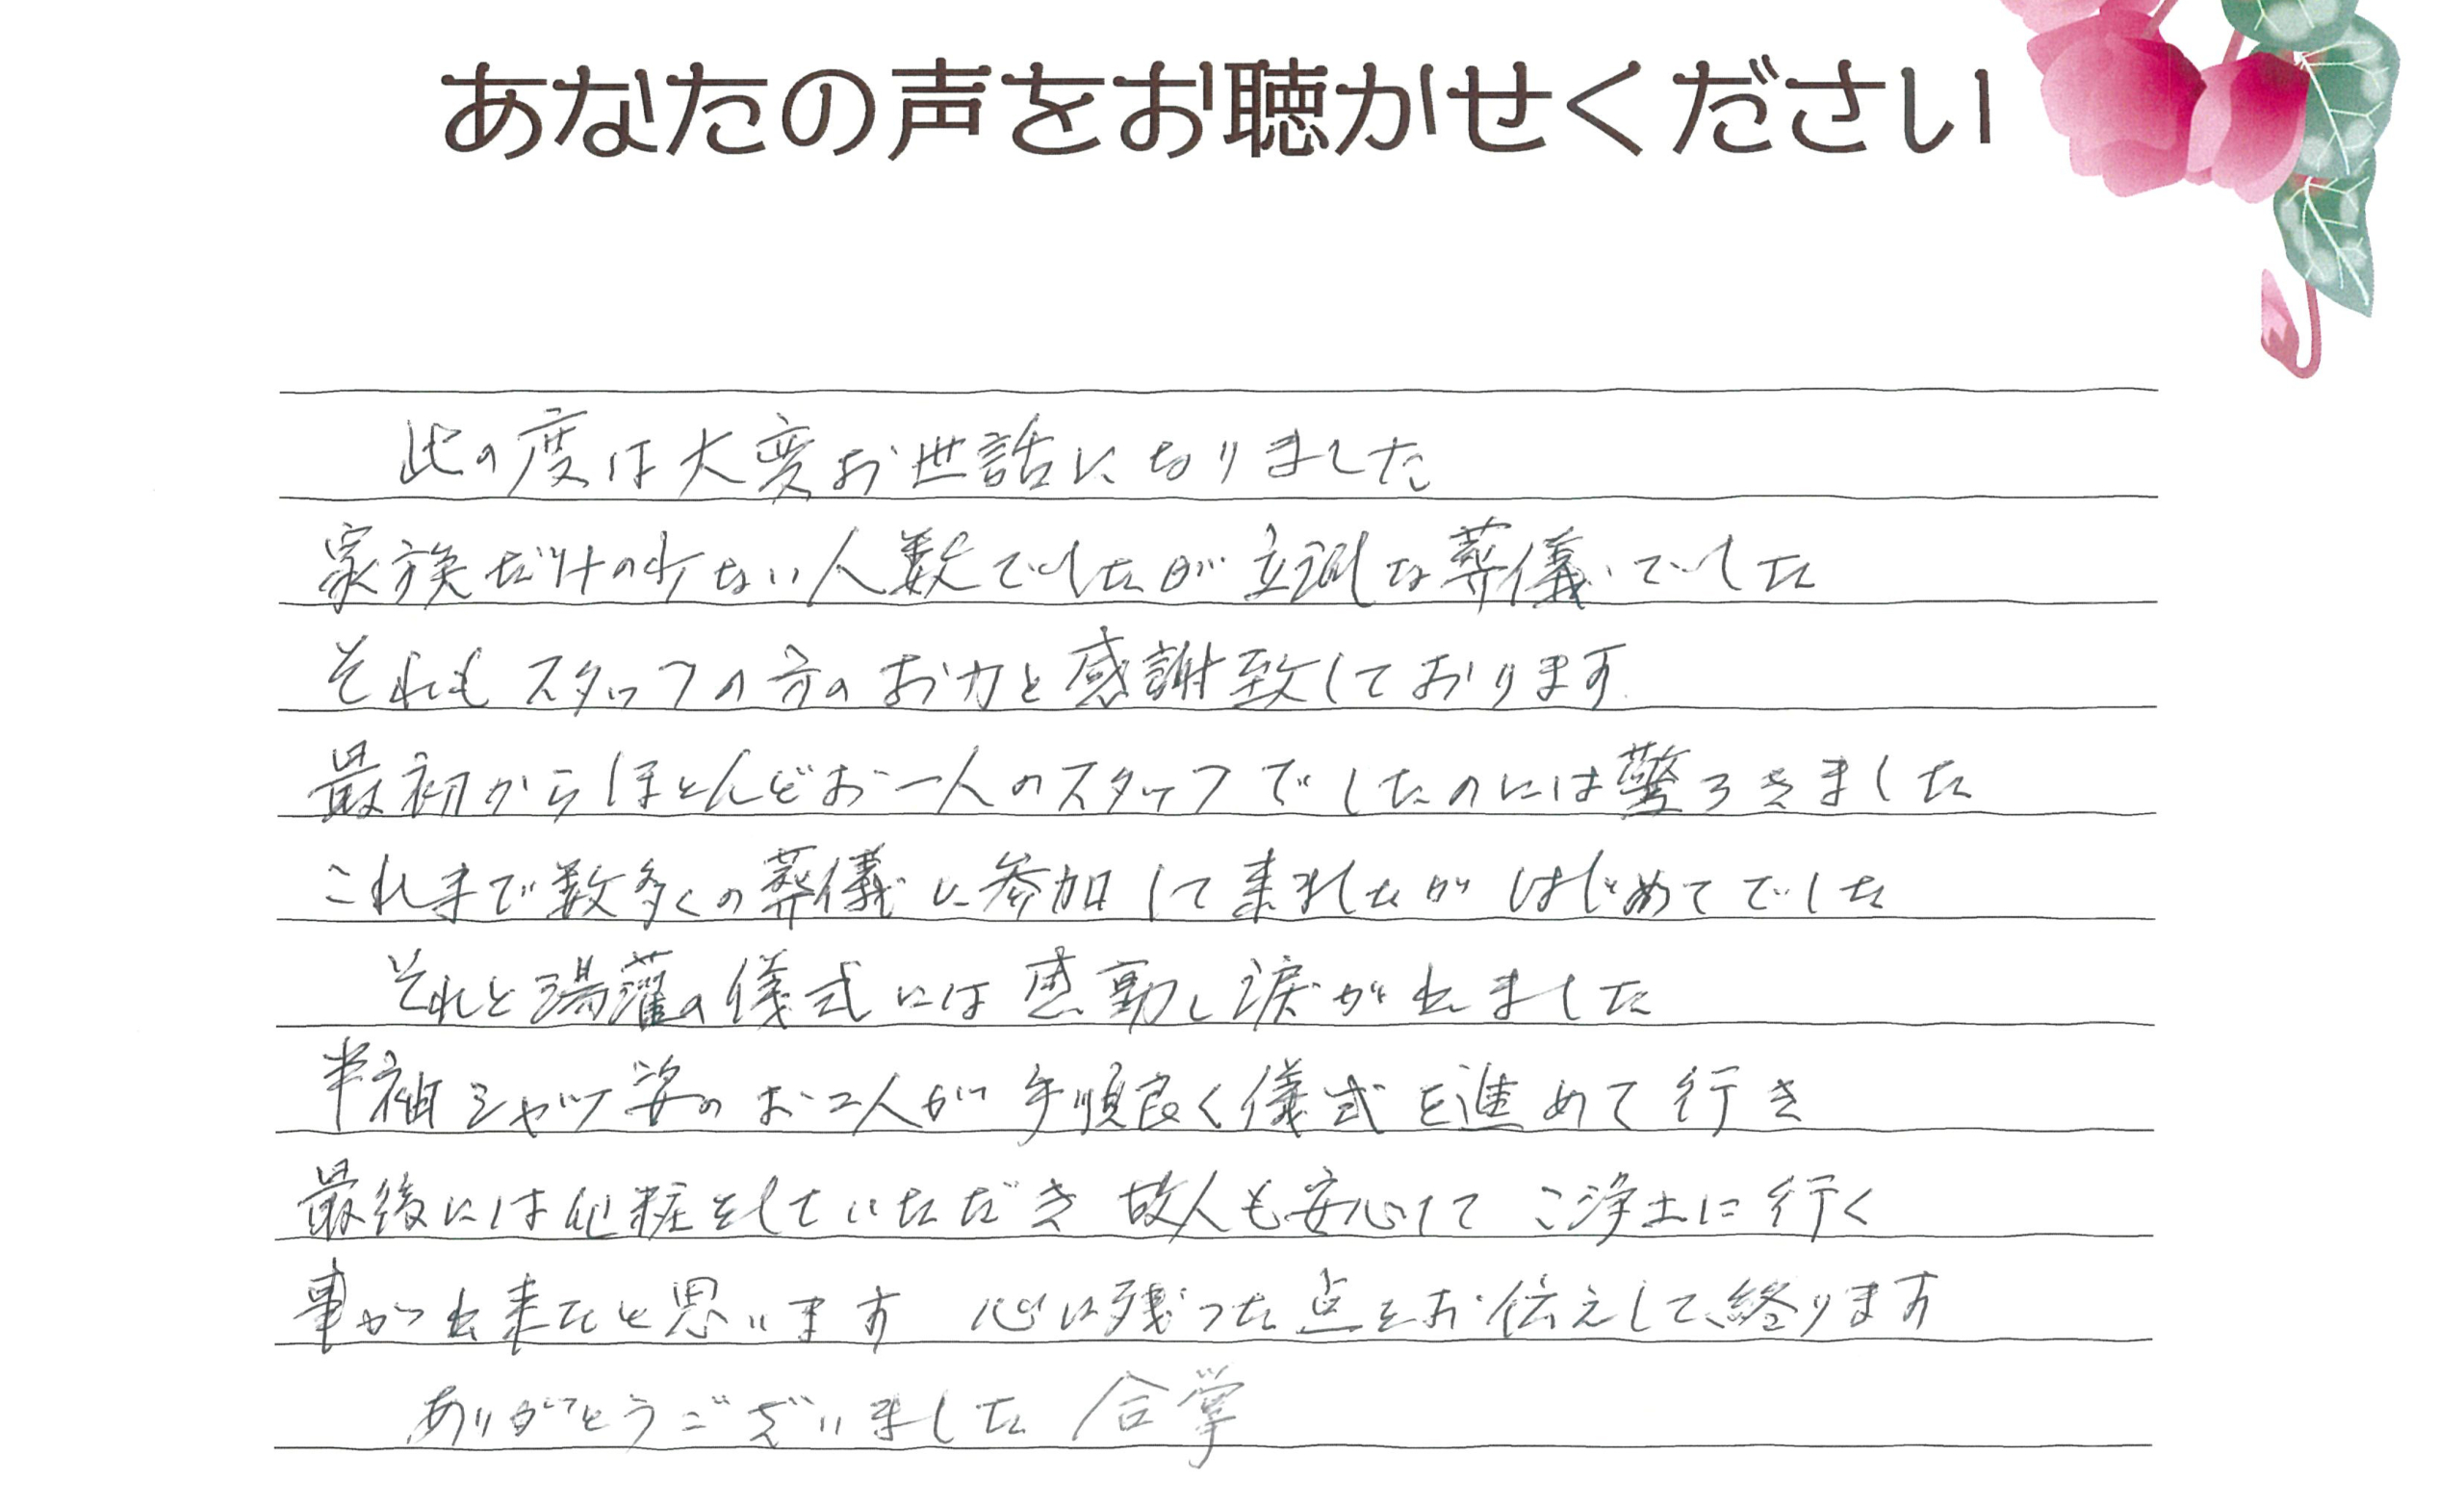 あなたの声をお聴かせください
此の度は大変お世話になりました
家族だけの少ない人数でしたが立派な葬儀でした
それもスタッフの方のお力と感謝致しております
最初からほとんどお一人のスタッフでしたのには驚ろきました
これまで数多くの葬儀に参加して来ましたがはじめてでした
それと湯灌の儀式には感動し涙が出ました
半袖シャツ姿のお二人が手順良く儀式を進めて行き
最後には化粧をしていただき 故人も安心して ご浄土に行く
事が出来たと思います 心に残った点をお伝えして終ります
ありがとうございました 合掌